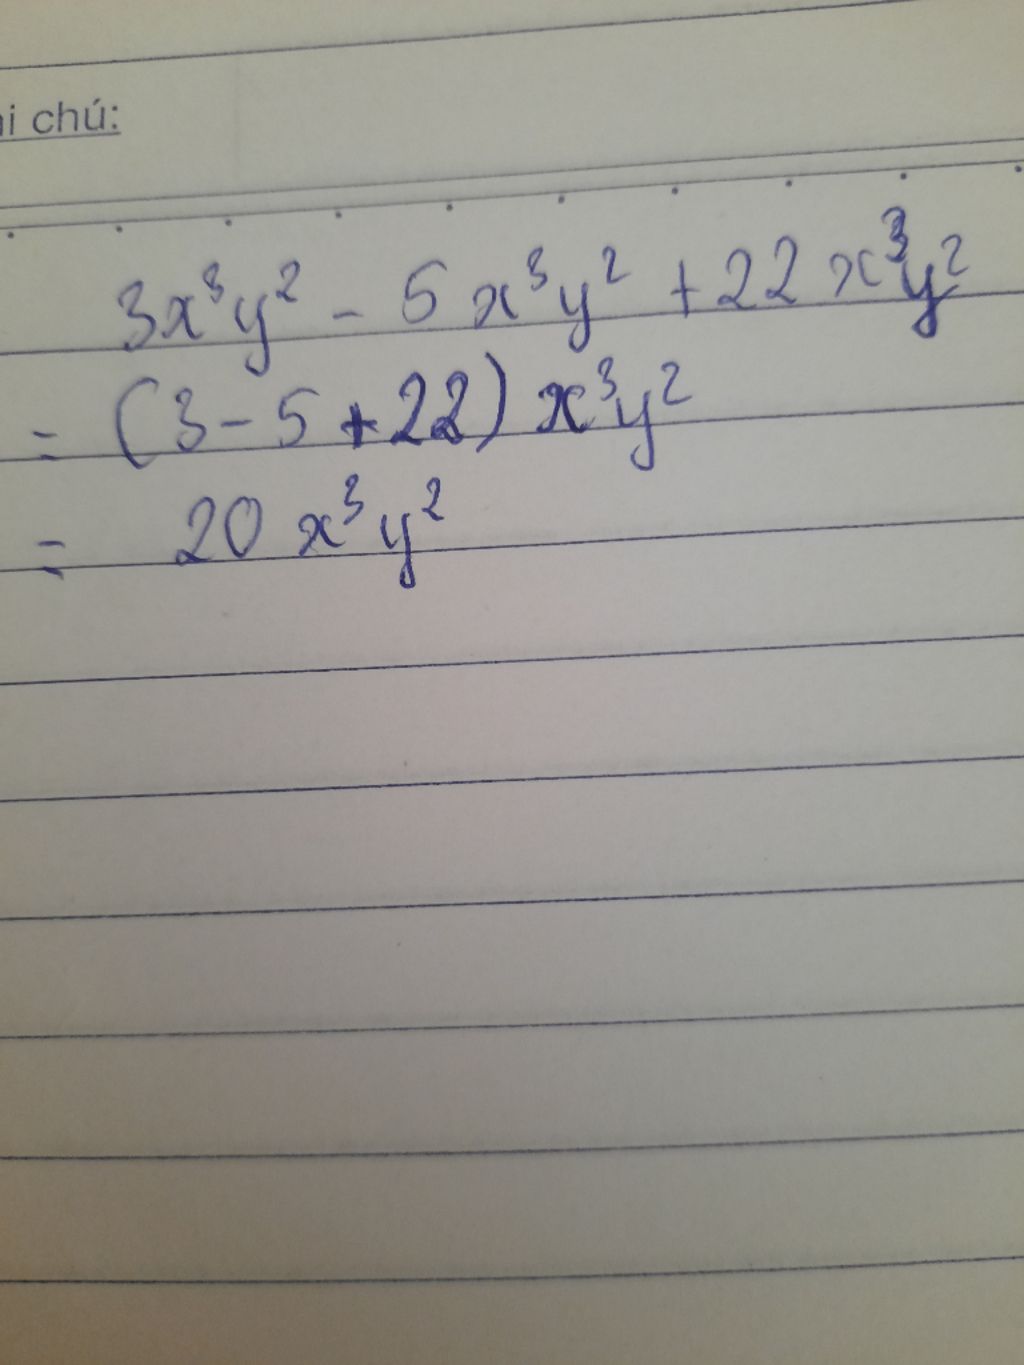 chú:
3x³y² - 5x³y² + 22x³y²
= (3 - 5 + 22) x³y²
= 20 x³y²